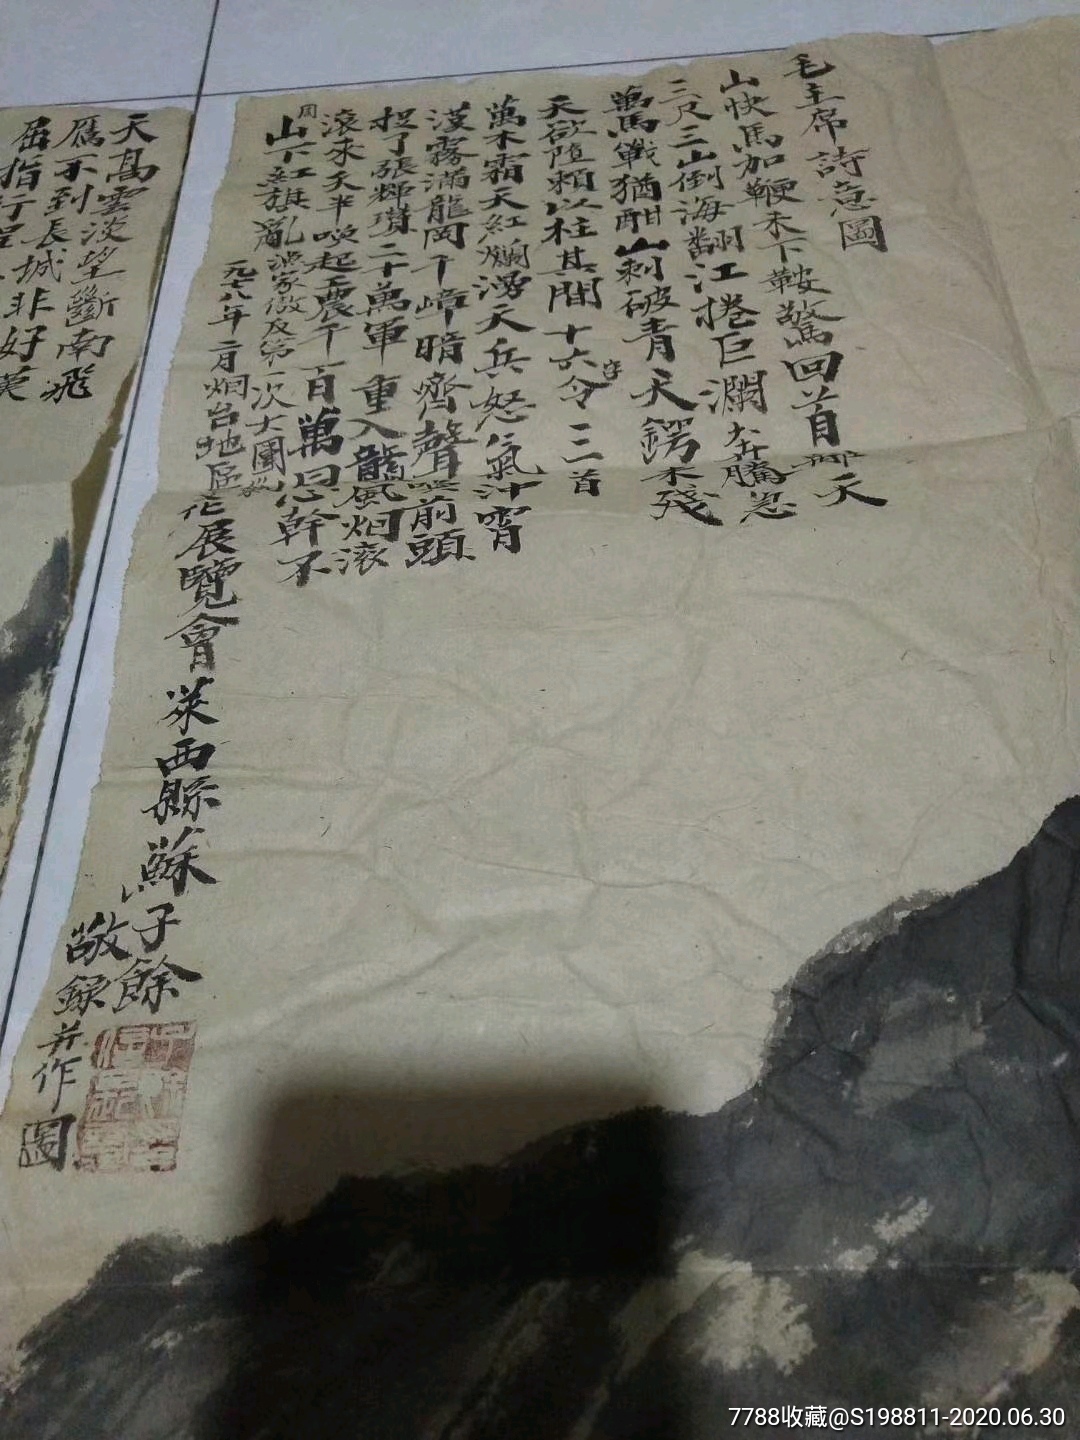 毛主席詩意圖
山快馬加鞭未下鞍驚回首離天
三尺三山倒海翻江捲巨瀾奔騰急
萬馬戰猶酣山刺破青天鍔未殘
天欲墮賴以柱其間十六字令三首
萬木霜天紅爛湧天兵怒氣沖霄
漢霧滿龍岡千嶂暗齊聲喚前頭
捉了張輝瓚二十萬軍重入贛風烟滾
滾來天半喚起工農千百萬同心幹不
周山下紅旗亂漁家傲反第一次大圍剿
一九七八年二月烟台地區作展覽會萊西縣蘇子餘
敬錄并作圖
天高雲淡望斷南飛
雁不到長城非好漢
屈指行程
7788收藏@S198811-2020.06.30